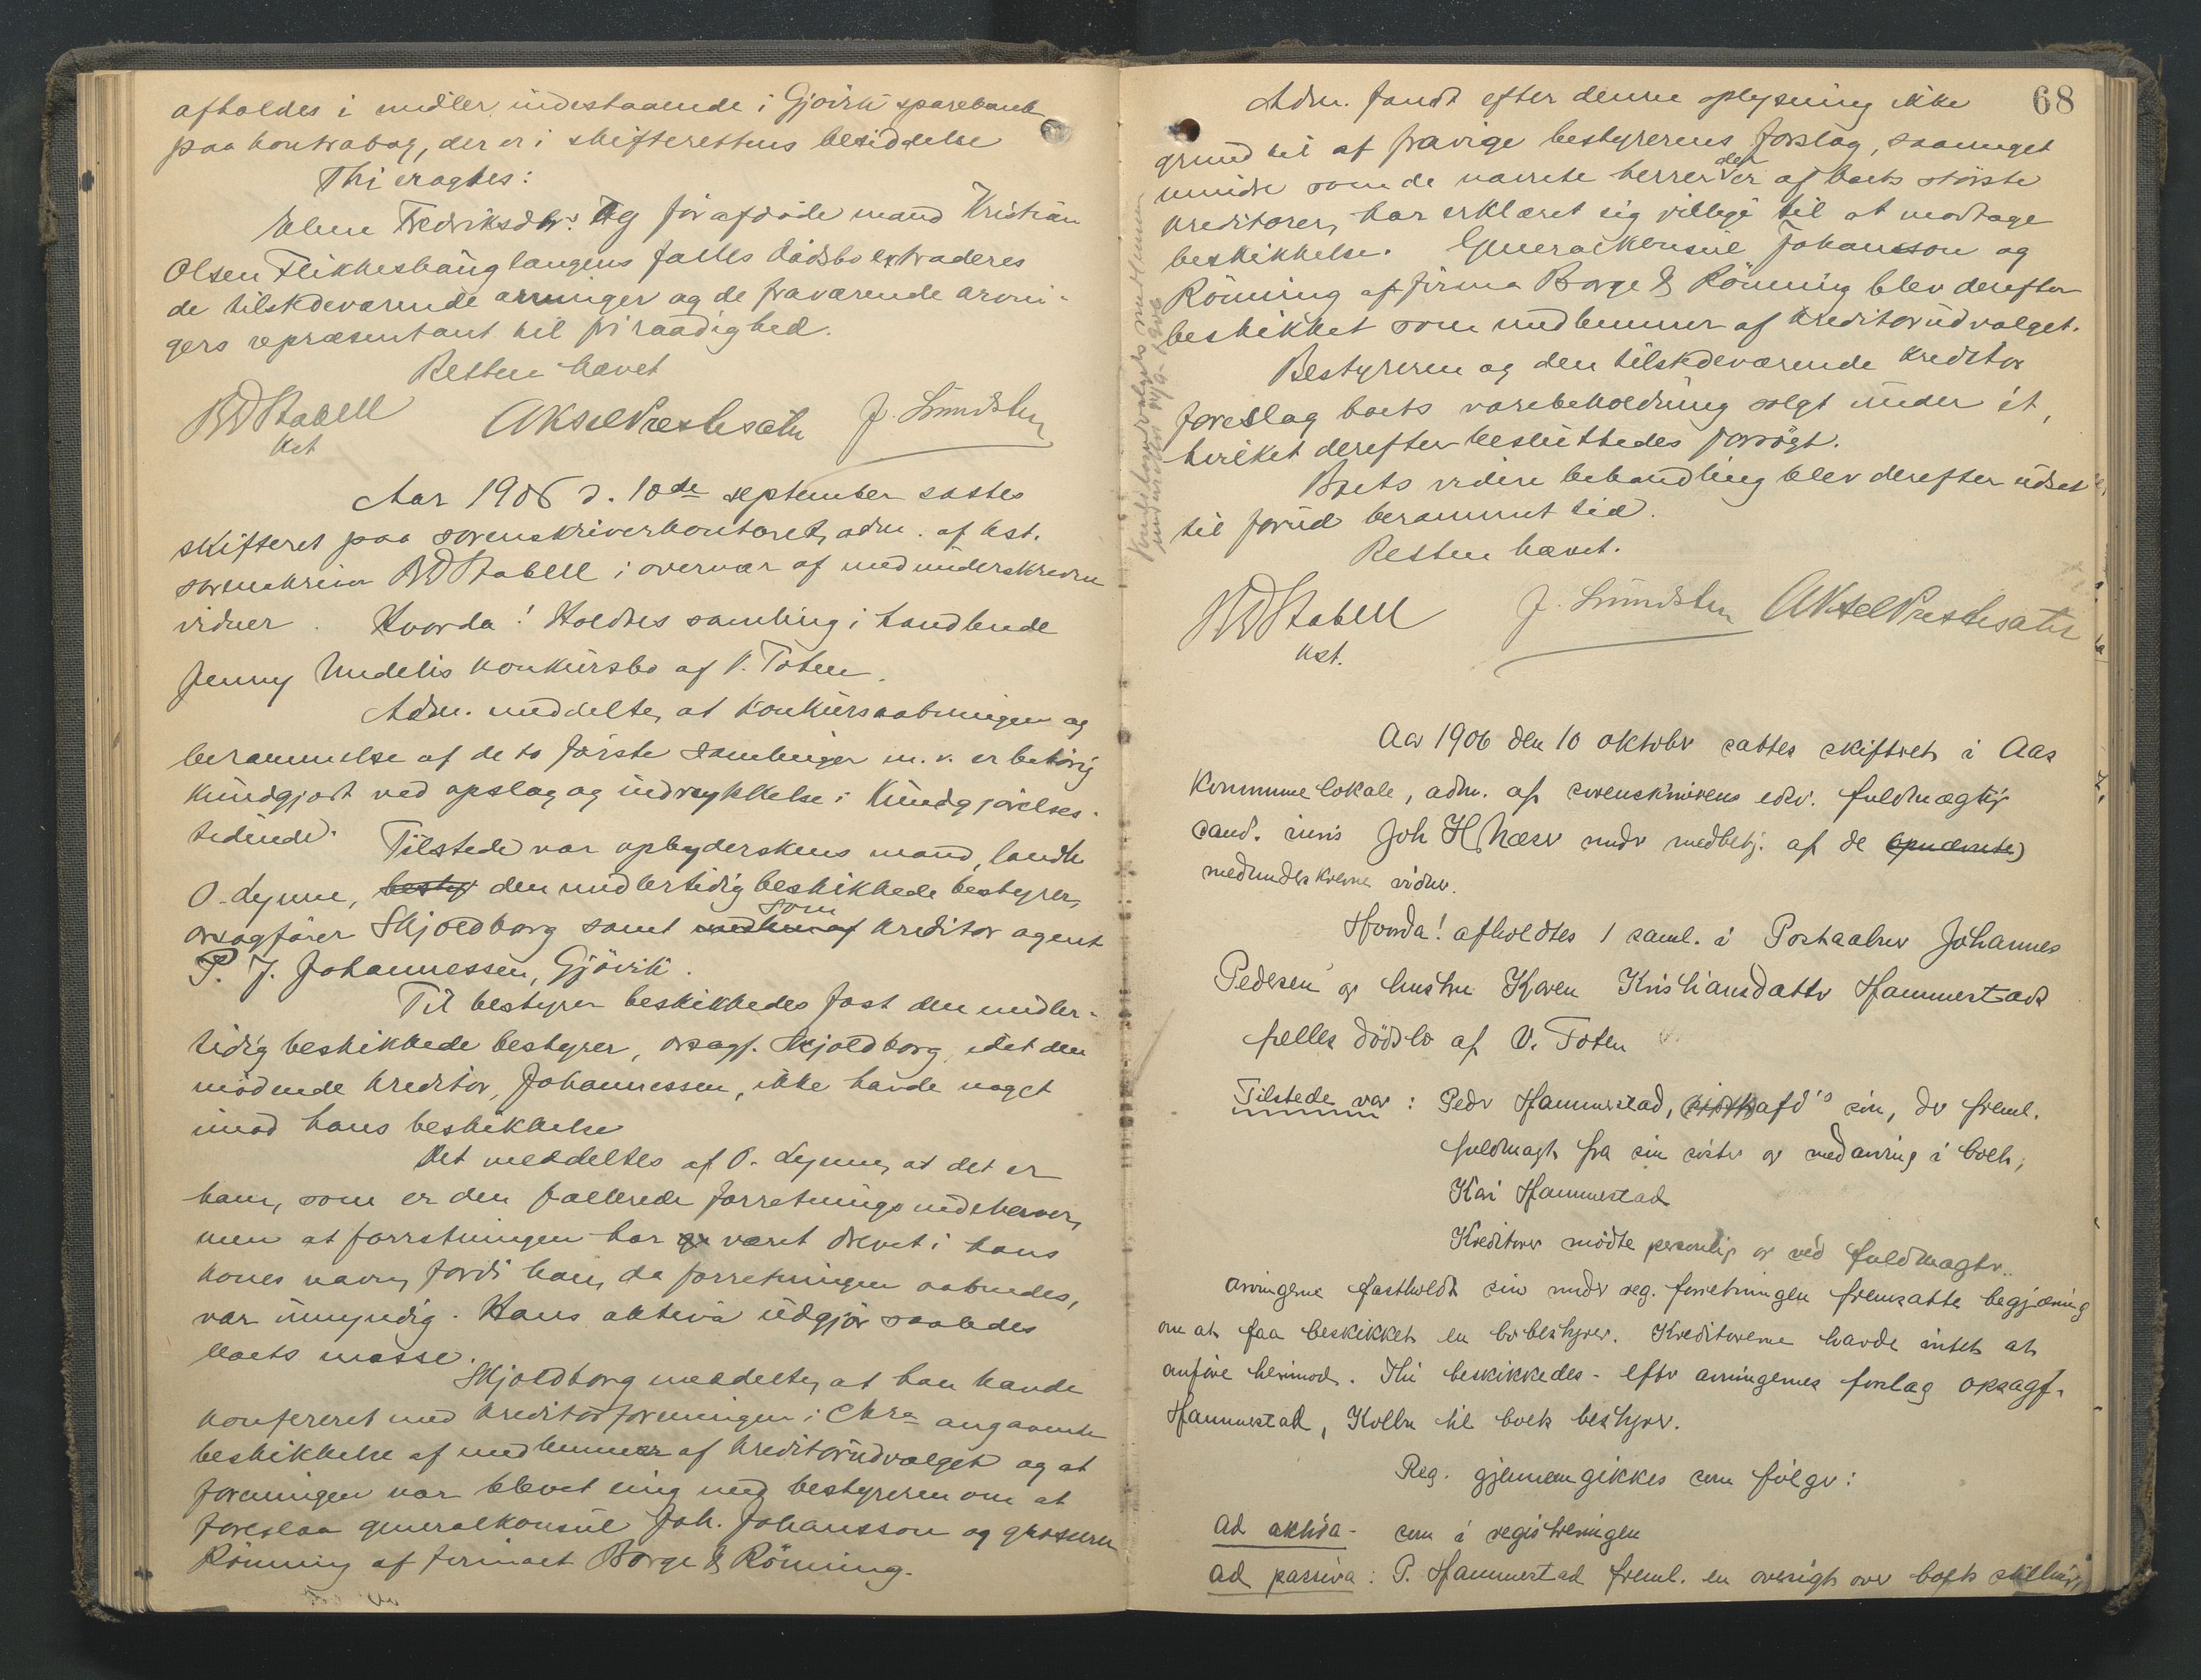 afholdes i midler indestaaende i Gjövik sparebank
paa kontrabog, der er i skifterettens besiddelse
Thi eragtes:
Olsen Flikkeshaug langens fælles dödsbo extraderes
de tilstedeværende arvinger og de fraværende arvin-
gers repræsentant til fri raadighed.
Retten hævet
BDStabell
kst
Aksel Præstesæter
J. Lundsten
Aar 1906 d. 10de september sattes
skifteret paa sorenskriverkontoret, adm. af kst.
sorenskriver BDStabell i overvær af medunderskrevne
vidner. Hvorda! Holdtes samling i handlende
Jenny Undelis konkursbo af V. Toten.
Adm. meddelte, at konkursaabningen og
berammelse af de to förste samlinger m. v. er behörig
kundgjort ved opslag og indrykkelse i Kundgjörelses-
tidende. Tilstede var opbyderskens mand, landh
O. Lynne, besty den midlertidig beskikkede bestyrer,
orsagförer Skjoldborg samt som kreditor agent
P. J. Johannessen, Gjövik.
Til bestyrer beskikkedes fast den midler-
tidig beskikkede bestyrer, orsagf. Skjoldborg, idet den
mödende kreditor, Johannessen, ikke havde noget
imod hans beskikkelse
Det meddeltes af O. Lynne, at det er
ham, som er den fallerede forretnings indehaver,
men at forretningen har været drevet i hans
kones navn, fordi han, da forretningen aabnedes,
var umyndig. Hans aktiva udgjör saaledes
boets masse.
Skjoldborg meddelte, at han havde
konfereret med kreditorforeningen i Chra angaaende
beskikkelse af medlemmer af kreditorudvalget og at
foreningen var blevet enig med bestyreren om at
foreslaa generalkonsul Joh. Johansson og grosserer
Rönning af firmaet Borge & Rönning.
68
Adm. fandt efter denne oplysning ikke
grund til at fravige bestyrerens forslag, saameget
mindre som de nævnte herrer, der er af boets störste
kreditorer, har erklæret sig villige til at modtage
beskikkelse. Generalkonsul Johansson og
Rönning af firma Borge & Rönning blev derefter
beskikket som medlemmer af kreditorudvalget.
Bestyreren og den tilstedeværende kreditor
foreslog boets varebeholdning solgt under ét,
hvilket derefter besluttedes forsögt.
Boets videre behandling blev derefter udsat
til forud berammet tid.
Retten hævet.
BDStabell
kst.
J. Lundsten
Aksel Præstesæter
Aar 1906 den 10 oktober sattes skifteret i Aas
kommunelokale, adm. af sorenskriverens edsv. fuldmægtig
cand. juris Joh H Næss under medbetj. af de opnævnte
medunderskrevne vidner.
Hvorda! afholdtes 1 saml. i Postaabner Johannes
Pedersen og hustru Karen Kristiansdatter Hammerstad
felles dödsbo af V. Toten
Tilstede var: Peder Hammerstad, afd's sön, der freml.
fuldmagt fra sin söster og medarving i boet,
Kari Hammerstad
Kreditorer mödte personlig og ved fuldmagter.
arvingerne fastholdt sin under reg. forretningen fremsatte begjæring
om at faa beskikket en bobestyrer. Kreditorerne havde intet at
anföre herimod. Thi beskikkedes - efter arvingernes forslag orsagf.
Hammerstad, Kolbu til boets bestyrer.
Reg. gjennemgikkes som fölger:
ad aktiva - som i registreringen
ad passiva: P. Hammerstad freml. en oversigt over boets stilling,